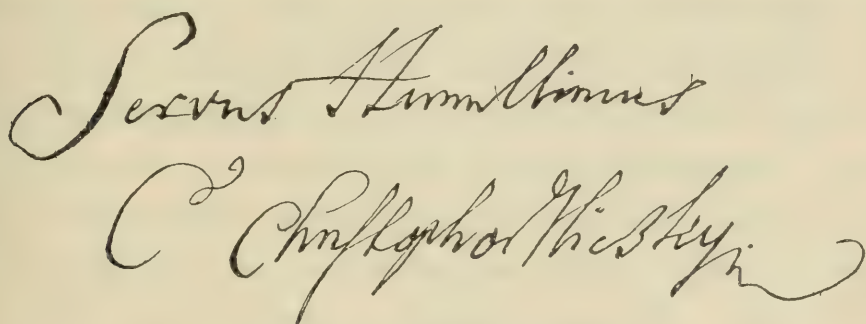 Servus Humillimus
C Christophor Niczky